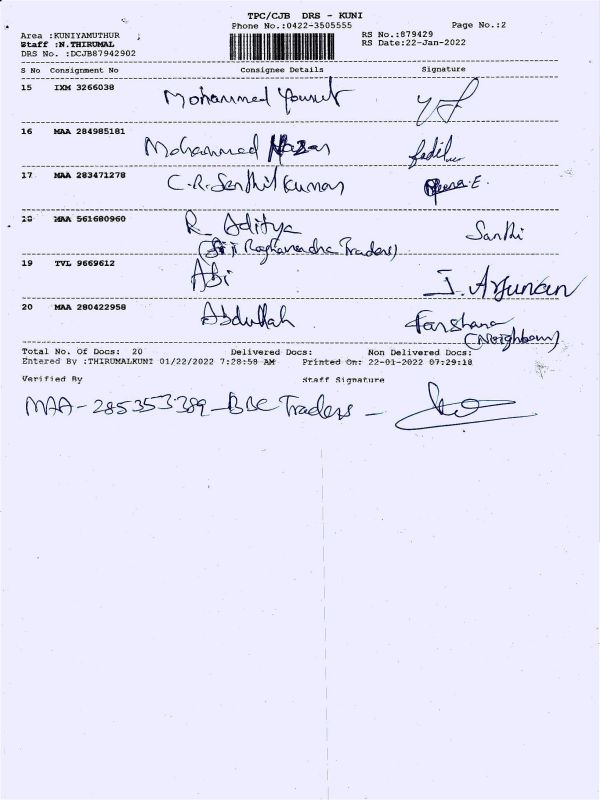 TPC/CJB DRS - KUNI
Phone No.:0422-3505555 Page No.:2
Area :KUNIYAMUTHUR RS No.:879429
Staff :N.THIRUMAL RS Date:22-Jan-2022
DRS No. :DCJB87942902
S No Consignment No Consignee Details Signature
15 IXM 3266038 Mohammed Yousuf
16 MAA 284985181 Mohammed fadil
17 MAA 283471278 C.R. Senthil Kumar
18 MAA 561680960 R. Aditya Santhi
(Sri Raghavendra Traders)
19 TVL 9669612 Abi J. Arjunan
20 MAA 280422958 Abdullah Farshana
(Neighbour)
Total No. Of Docs: 20 Delivered Docs: Non Delivered Docs:
Entered By :THIRUMALKUNI 01/22/2022 7:28:58 AM Printed On: 22-01-2022 07:29:18
Verified By Staff Signature
MAA-285353389-BBC Traders -